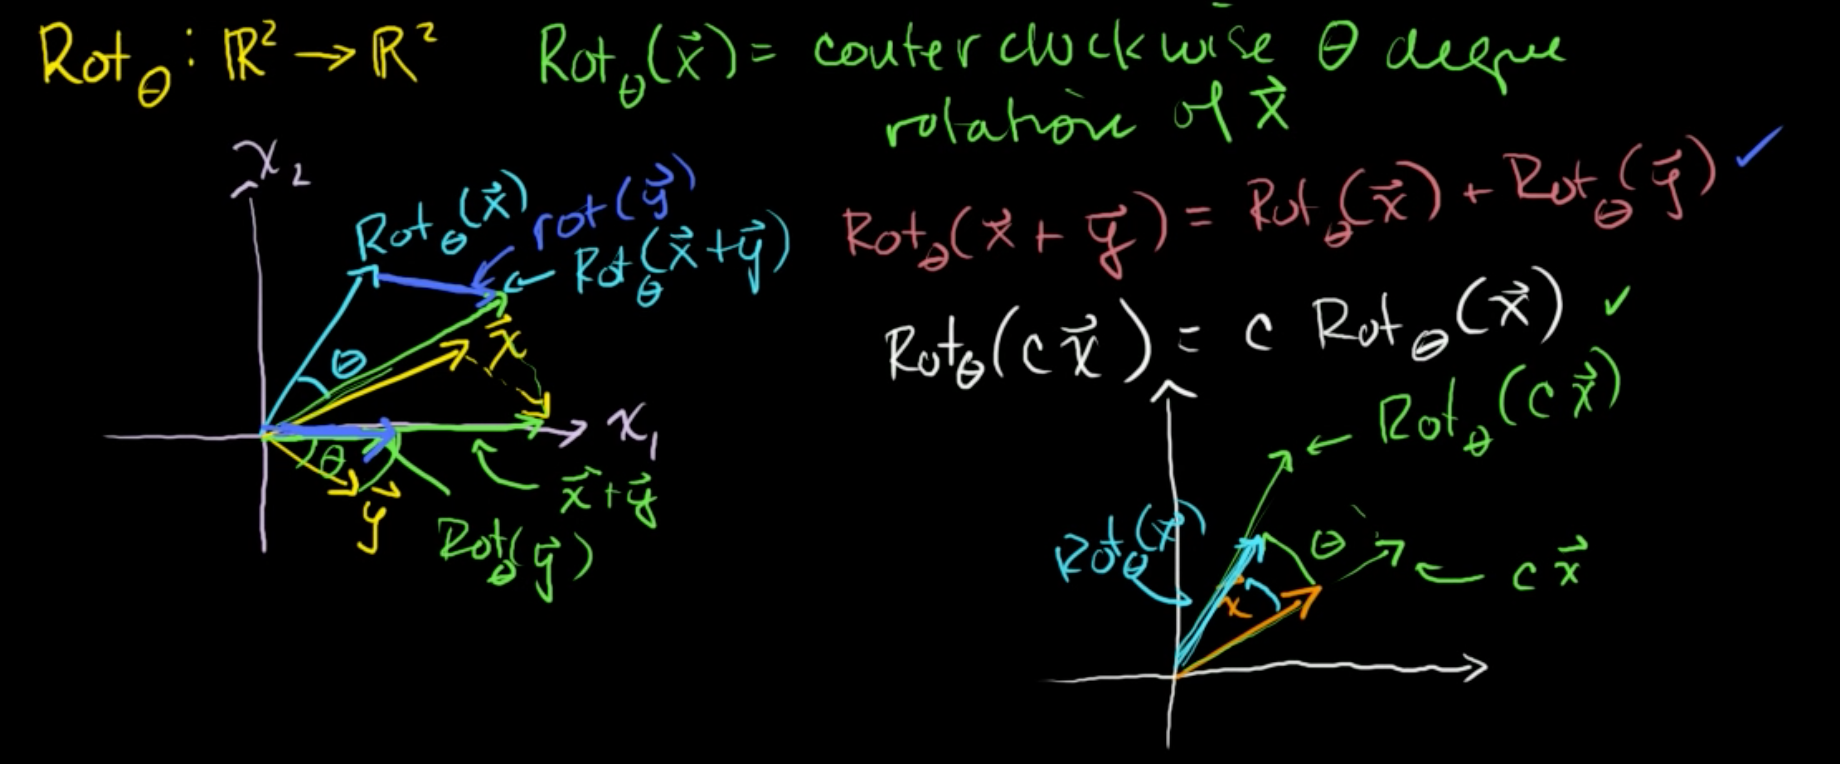 Rot_θ : ℝ² → ℝ²
Rot_θ(x⃗) = couterclockwise θ degree
rotation of x⃗
x₂
Rot_θ(x⃗)
rot(y⃗)
Rot_θ(x⃗+y⃗)
Rot_θ(x⃗ + y⃗) = Rot_θ(x⃗) + Rot_θ(y⃗) ✓
Rot_θ(c x⃗) = c Rot_θ(x⃗) ✓
θ
x⃗
x₁
θ
y⃗
x⃗+y⃗
Rot_θ(y⃗)
Rot_θ(c x⃗)
Rot_θ(x⃗)
θ
x⃗
c x⃗